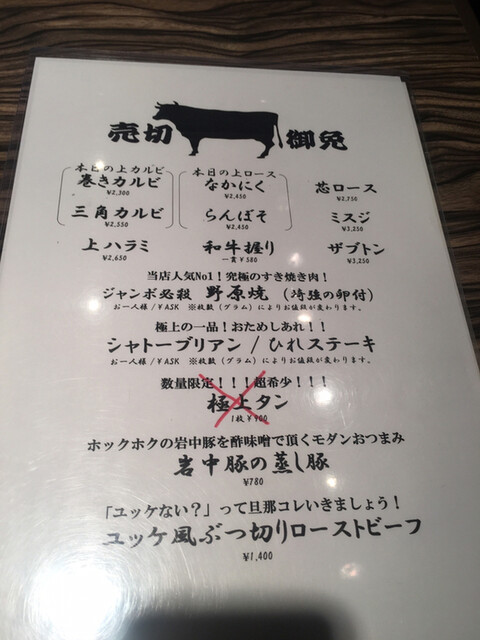 売切 御免
本日の上カルビ
巻きカルビ
¥2,300
三角カルビ
¥2,550
本日の上ロース
なかにく
¥2,450
らんぼそ
¥2,450
芯ロース
¥2,750
ミスジ
¥3,250
上ハラミ
¥2,650
和牛握り
一貫¥580
ザブトン
¥3,250
当店人気No1!究極のすき焼き肉!
ジャンボ必殺 野原焼 (湾強の卵付)
お一人様/¥ASK ※枚数(グラム)によりお値段が変わります。
極上の一品!おためしあれ!!
シャトーブリアン/ひれステーキ
お一人様/¥ASK ※枚数(グラム)によりお値段が変わります。
数量限定!!!超希少!!!
極上タン
1枚¥900
ホックホクの岩中豚を酢味噌で頂くモダンおつまみ
岩中豚の蒸し豚
¥780
「ユッケない?」って旦那コレいきましょう!
ユッケ風ぶつ切りローストビーフ
¥1,400